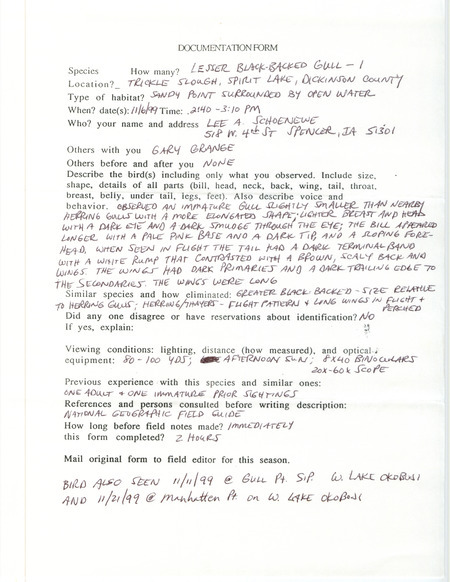 DOCUMENTATION FORM
Species How many? LESSER BLACK-BACKED GULL - 1
Location? TRICKLE SLOUGH, SPIRIT LAKE, DICKINSON COUNTY
Type of habitat? SANDY POINT SURROUNDED BY OPEN WATER
When? date(s): 11/6/99 Time: 2:40 - 3:10 PM
Who? your name and address LEE A. SCHOENEWE
518 W. 4th ST SPENCER, IA 51301
Others with you GARY GRANGE
Others before and after you NONE
Describe the bird(s) including only what you observed. Include size,
shape, details of all parts (bill, head, neck, back, wing, tail, throat,
breast, belly, under tail, legs, feet). Also describe voice and
behavior. OBSERVED AN IMMATURE GULL SLIGHTLY SMALLER THAN NEARBY
HERRING GULLS WITH A MORE ELONGATED SHAPE; LIGHTER BREAST AND HEAD
WITH A DARK EYE AND A DARK SMUDGE THROUGH THE EYE; THE BILL APPEARED
LONGER WITH A PALE PINK BASE AND A DARK TIP, AND A SLOPING FORE-
HEAD. WHEN SEEN IN FLIGHT THE TAIL HAD A DARK TERMINAL BAND
WITH A WHITE RUMP THAT CONTRASTED WITH A BROWN, SCALY BACK AND
WINGS. THE WINGS HAD DARK PRIMARIES AND A DARK TRAILING EDGE TO
THE SECONDARIES. THE WINGS WERE LONG
Similar species and how eliminated: GREATER BLACK-BACKED - SIZE RELATIVE
TO HERRING GULLS; HERRING/THAYERS - FLIGHT PATTERN & LONG WINGS IN FLIGHT &
PERCHED
Did any one disagree or have reservations about identification? NO
If yes, explain:
Viewing conditions: lighting, distance (how measured), and optical
equipment: 80-100 YDS; AFTERNOON SUN; 8X40 BINOCULARS
20X-60X SCOPE
Previous experience with this species and similar ones:
ONE ADULT & ONE IMMATURE PRIOR SIGHTINGS
References and persons consulted before writing description:
NATIONAL GEOGRAPHIC FIELD GUIDE
How long before field notes made? IMMEDIATELY
this form completed? 2 HOURS
Mail original form to field editor for this season.
BIRD ALSO SEEN 11/11/99 @ GULL Pt. S.P. W. LAKE OKOBOJI
AND 11/21/99 @ Manhatten Pt. on W. LAKE OKOBOJI